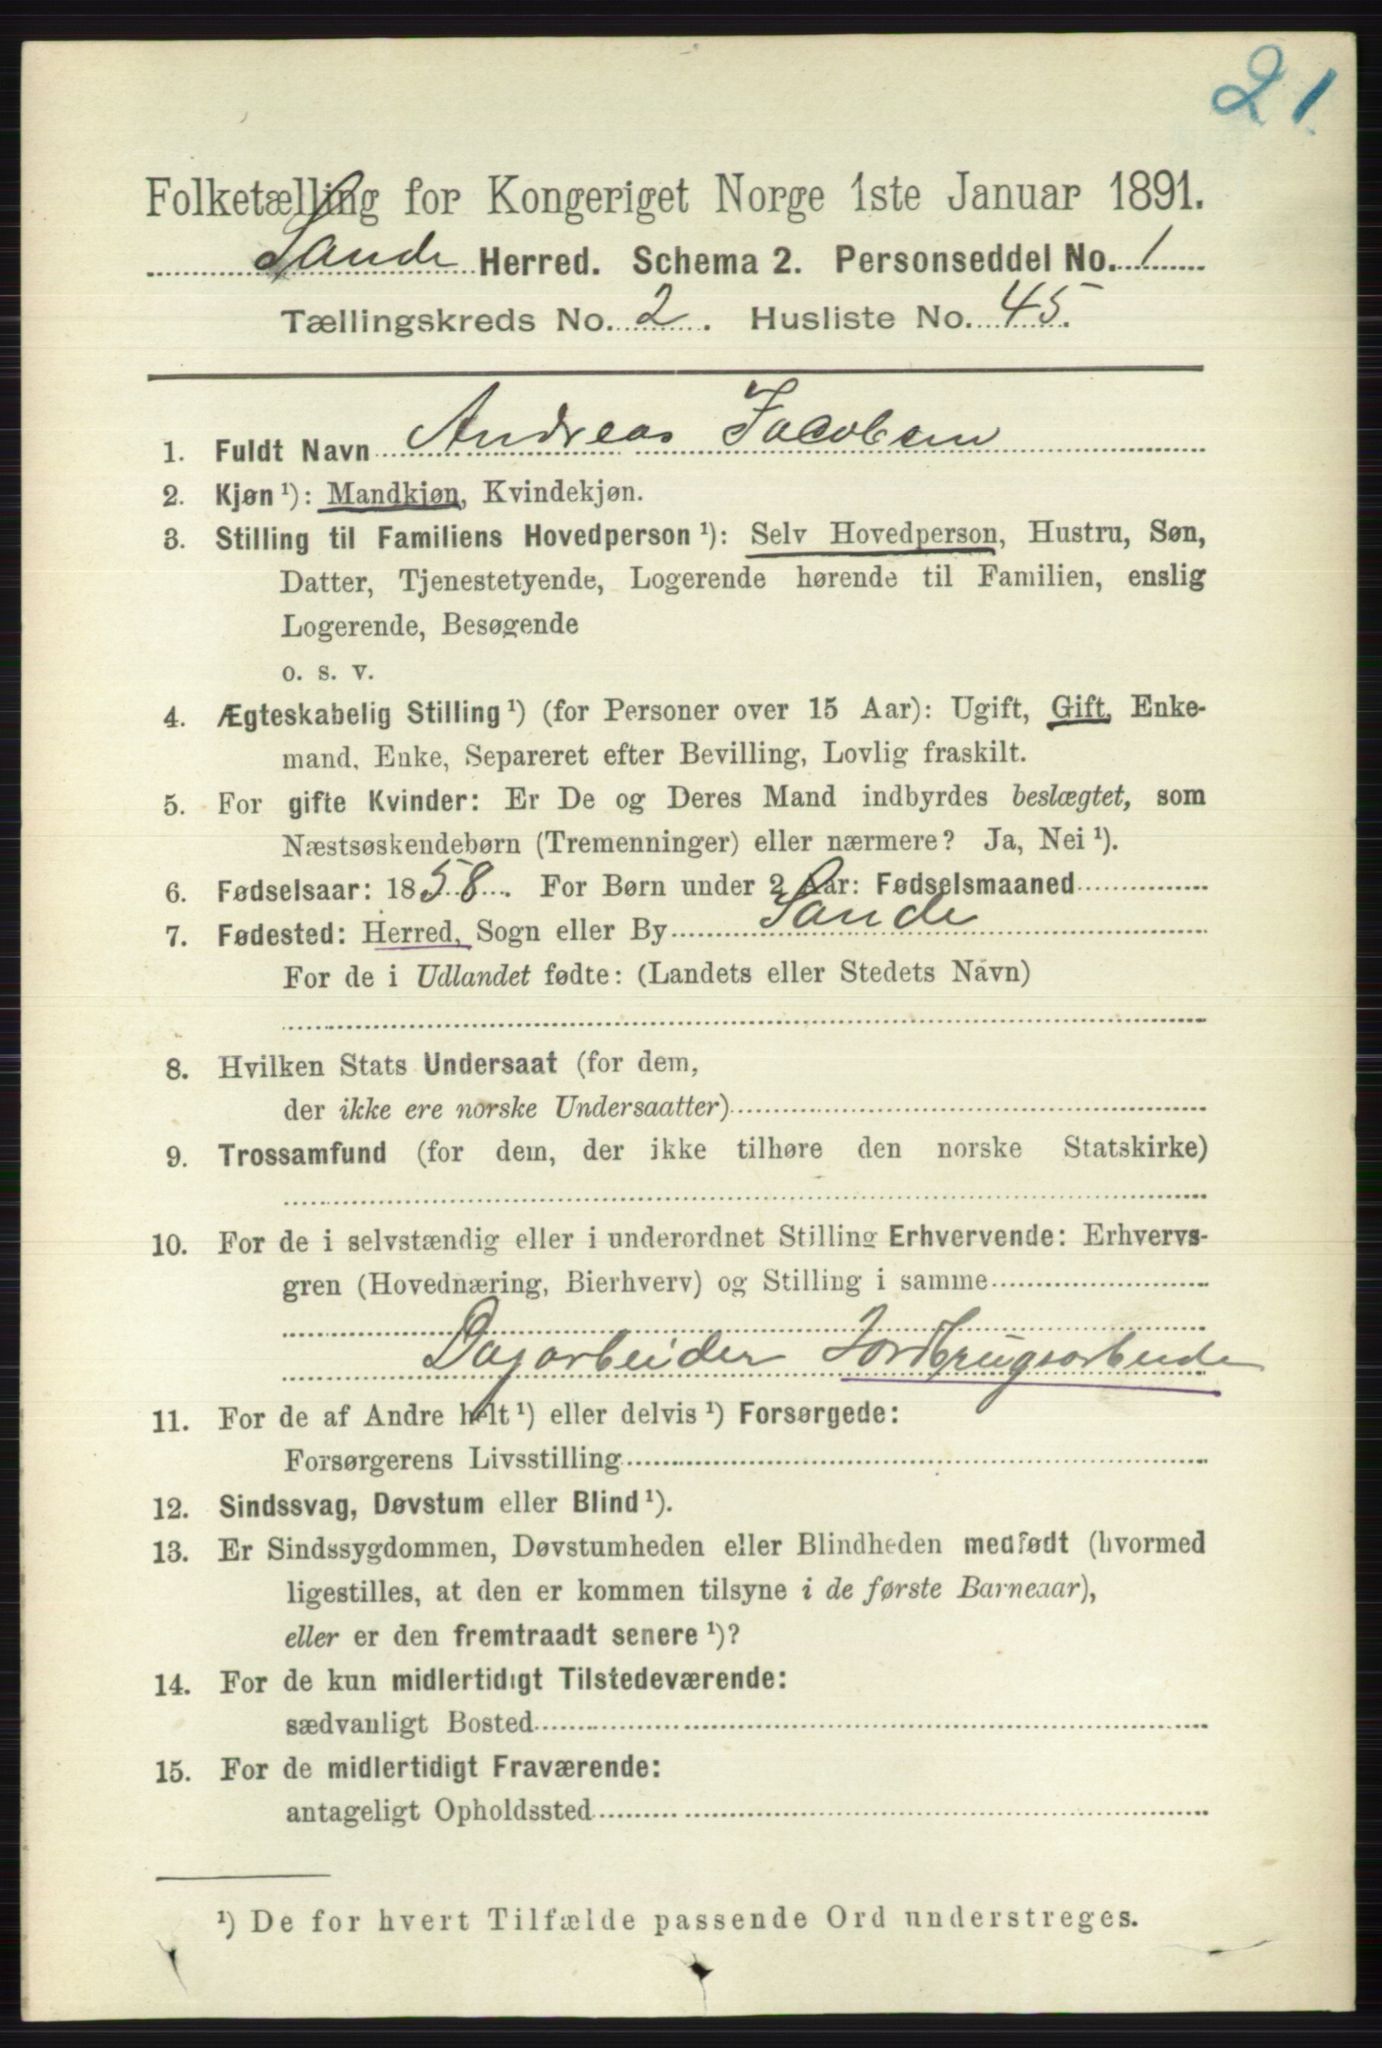 21
Folketælling for Kongeriget Norge 1ste Januar 1891.
Sande Herred. Schema 2. Personseddel No. 1
Tællingskreds No. 2. Husliste No. 45.
1. Fuldt Navn Andreas Jacobsen
2. Kjøn ¹): Mandkjøn, Kvindekjøn.
3. Stilling til Familiens Hovedperson ¹): Selv Hovedperson, Hustru, Søn,
Datter, Tjenestetyende, Logerende hørende til Familien, enslig
Logerende, Besøgende
o. s. v.
4. Ægteskabelig Stilling ¹) (for Personer over 15 Aar): Ugift, Gift, Enke-
mand, Enke, Separeret efter Bevilling, Lovlig fraskilt.
5. For gifte Kvinder: Er De og Deres Mand indbyrdes beslægtet, som
Næstsøskendebørn (Tremenninger) eller nærmere? Ja, Nei ¹).
6. Fødselsaar: 1858. For Børn under 2 Aar: Fødselsmaaned
7. Fødested: Herred, Sogn eller By Sande
For de i Udlandet fødte: (Landets eller Stedets Navn)
8. Hvilken Stats Undersaat (for dem,
der ikke ere norske Undersaatter)
9. Trossamfund (for dem, der ikke tilhøre den norske Statskirke)
10. For de i selvstændig eller i underordnet Stilling Erhvervende: Erhvervs-
gren (Hovednæring, Bierhverv) og Stilling i samme
Dagarbeider Jordbrugsarbeide
11. For de af Andre helt ¹) eller delvis ¹) Forsørgede:
Forsørgerens Livsstilling
12. Sindssvag, Døvstum eller Blind ¹).
13. Er Sindssygdommen, Døvstumheden eller Blindheden medfødt (hvormed
ligestilles, at den er kommen tilsyne i de første Barneaar),
eller er den fremtraadt senere ¹)?
14. For de kun midlertidigt Tilstedeværende:
sædvanligt Bosted
15. For de midlertidigt Fraværende:
antageligt Opholdssted
¹) De for hvert Tilfælde passende Ord understreges.